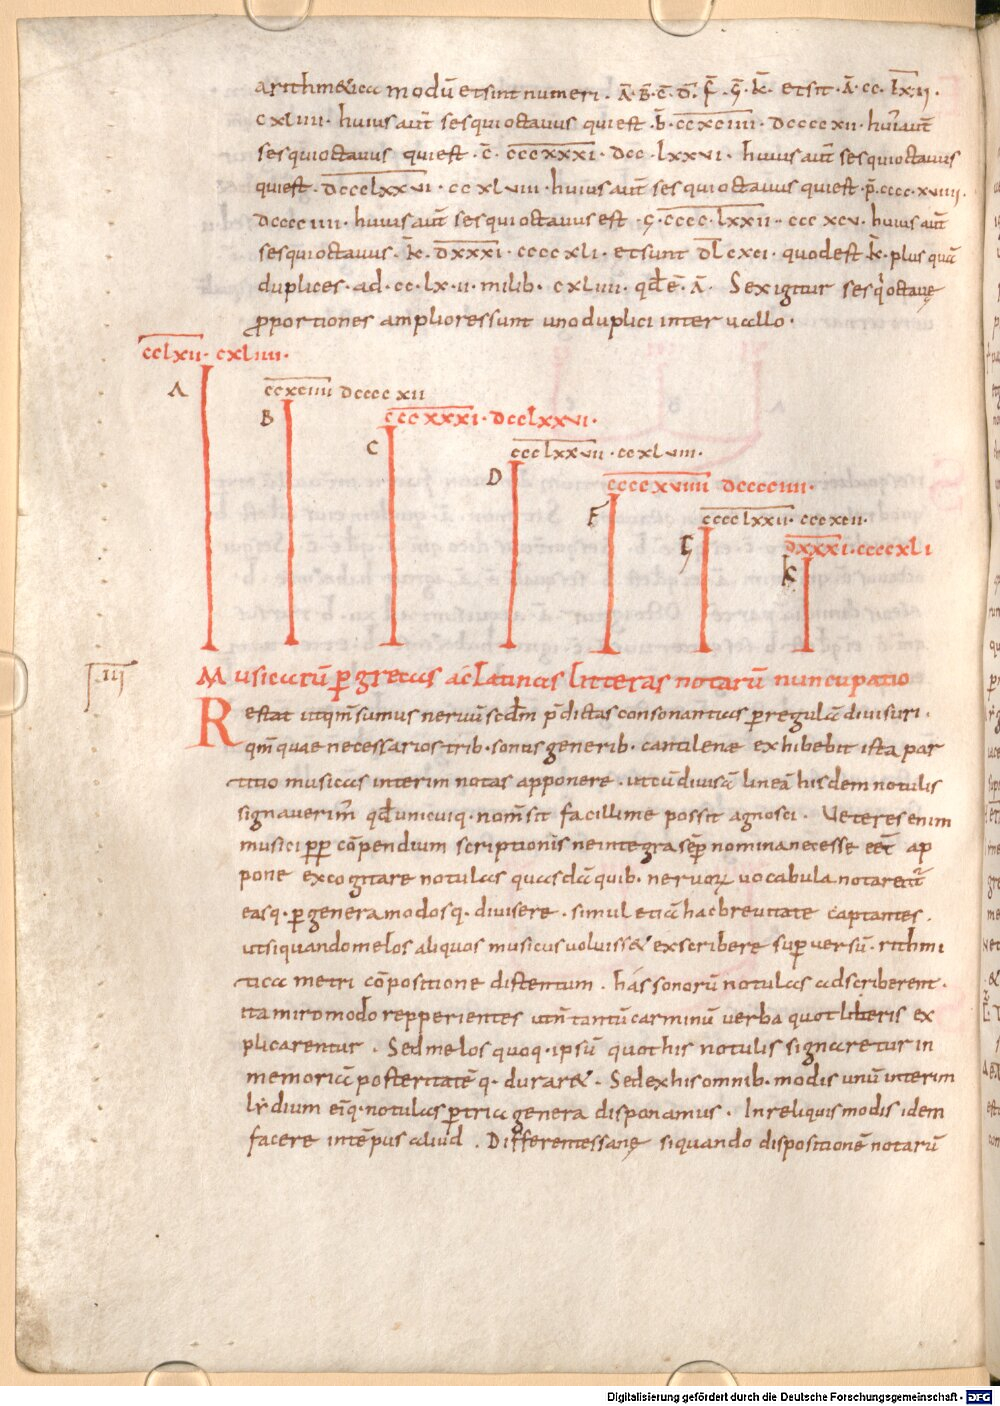 arithmeticā modū et sint numeri . Ā . B̄ . C̄ . D̄ . F̄ . Ḡ . k̄ . et sit . Ā . cc . lx . ii .
cxliiii . huius aut̄ sesquioctauus qui est . b̄ . ccxciiii . dccccxii . hui' aut̄
sesquioctauus qui est . c̄ . cccxxxi . dcc . lxxvi . huius aut̄ sesquioctauus
qui est . dccclxxvi . ccxlviii . huius aut̄ sesquioctauus qui est . F̄ . cccc . xviiii .
dcccciiii . huius aut̄ sesquioctauus est . ç . cccc . lxxii . cccxcv . huius aut̄
sesquioctauus . k̄ . dxxxi . ccccxli . et sunt dlcxci . quod est k̄ . plus quā
duplices . ad . cc . lx . ii . milib . cxliiii . qđ ē . Ā . Sex igitur sesq'octauę
ꝓportiones ampliores sunt uno duplici interuallo .
cclxii . cxliiii .
A
ccxciiii dccccxii
B
cccxxxi . dcclxxvi .
C
ccclxxvii . ccxlviii .
D
ccccxviiii dcccciiii .
F
cccclxxii . cccxcii .
Ç
dxxxi . ccccxli
k
III
Musicarū ꝑ grecas ac latinas litteras notarū nuncupatio
Restat ut qm̄ sumus neruū scdm̄ p̄dictas consonantias ꝑ regulā diuisuri .
qm̄ quae necessarios trib . sonis generib . cantilenæ exhibebit ista par
titio musicas interim notas apponere . ut cū diuisā lineā hisdem notulis
signauerim' qđ unicuiq . nom̄ sit facillime possit agnosci . Ueteres enim
musici ꝓp cōpendium scriptionis ne integra sēp nomina necesse eēt ap
pone excogitare notulas quasdā quib . neruoꝝ uocabula notarent'
easq . ꝑ genera modosq . diuisere . simul etiā hac breuitate captantes .
ut si quando melos aliquos musicus uoluiss& exscribere suꝑ uersū . rithmi
tica metri cōpositione distentum . has sonorū notulas adscriberent .
ita miro modo repperientes ut n̄ tantū carminū uerba quot liberis ex
plicarentur . Sed melos quoq . ipsū quot his notulis signaretur in
memoriā posteritatē q . durar& . Sed ex his omnib . modis unū interim
lydium eiq' . notulas ꝑ tria genera disponamus . In reliquis modis idem
facere in tēpus aliud . Differentes sanę si quando dispositionē notarū
Digitalisierung gefördert durch die Deutsche Forschungsgemeinschaft - DFG